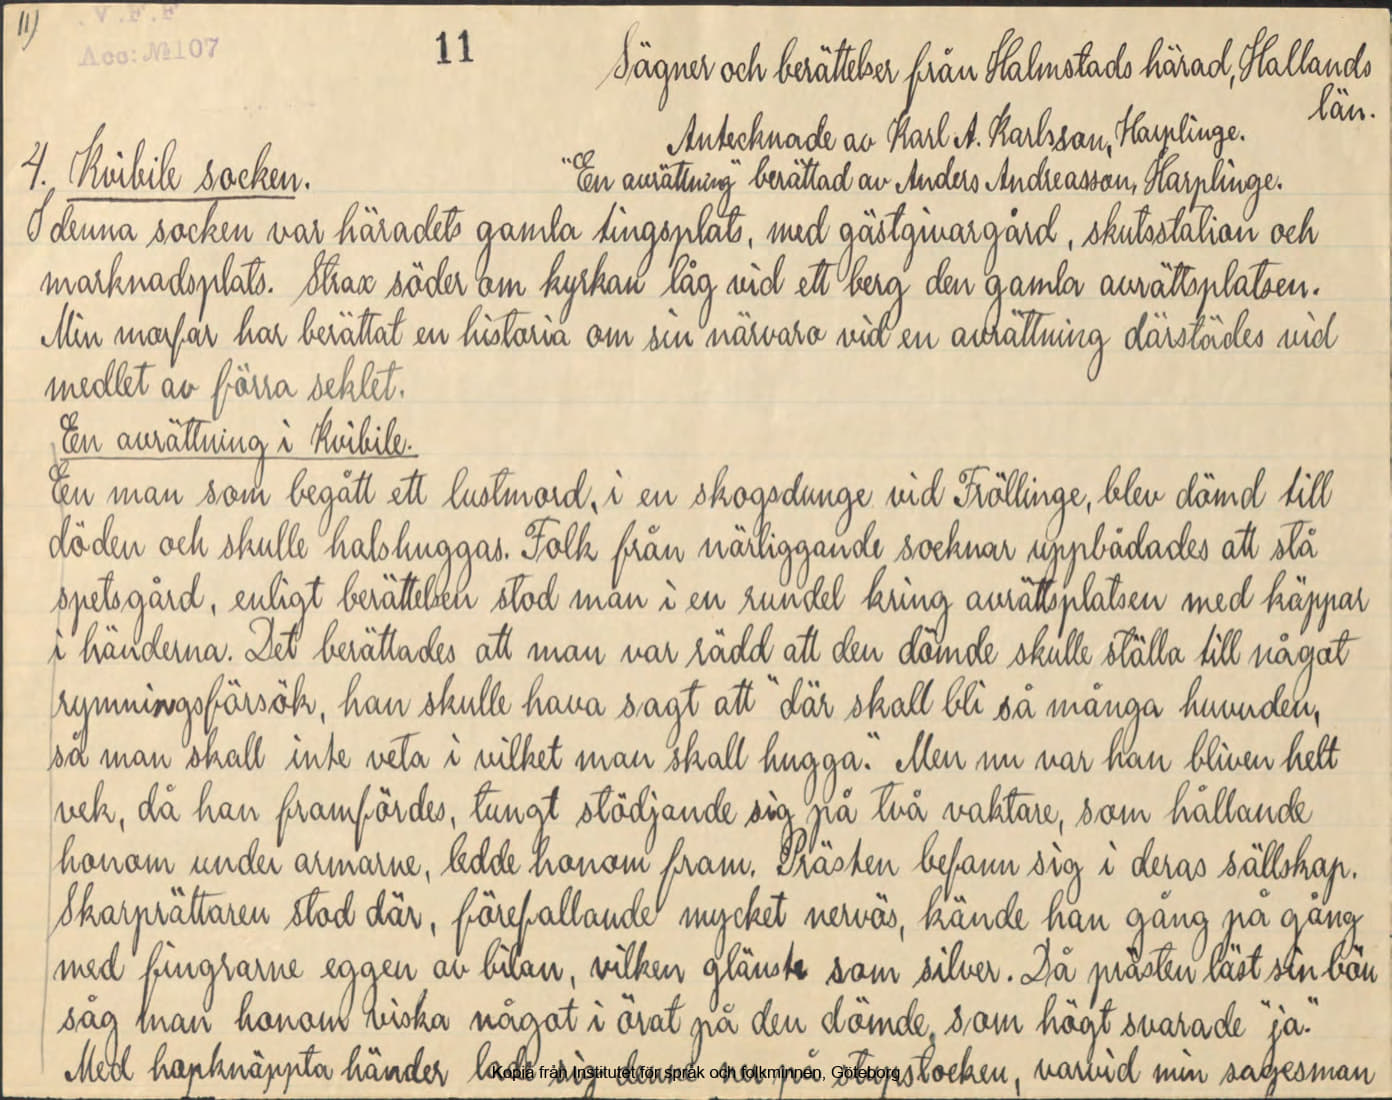 11)
.V.F.F
Acc: №107
11
Sägner och berättelser från Halmstads härad, Hallands
län.
Antecknade av Karl A. Karlsson, Harplinge.
4. Kvibile socken.
"En avrättning" berättad av Anders Andreasson, Harplinge.
I denna socken var häradets gamla tingsplats, med gästgivargård, skutsstation och
marknadsplats. Strax söder om kyrkan låg vid ett berg den gamla avrättsplatsen.
Min morfar har berättat en historia om sin närvaro vid en avrättning därstädes vid
medlet av förra seklet.
En avrättning i Kvibile.
En man som begått ett lustmord, i en skogsdunge vid Fröllinge, blev dömd till
döden och skulle halshuggas. Folk från närliggande socknar uppbådades att stå
spetsgård, enligt berättelsen stod man i en rundel kring avrättsplatsen med käppar
i händerna. Det berättades att man var rädd att den dömde skulle ställa till något
rymningsförsök, han skulle hava sagt att "där skall bli så många huvuden,
så man skall inte veta i vilket man skall hugga." Men nu var han bliven helt
vek, då han framfördes, tungt stödjande sig på två vaktare, som hållande
honom under armarne, ledde honom fram. Prästen befann sig i deras sällskap.
Skarprättaren stod där, förefallande mycket nervös, kände han gång på gång
med fingrarne eggen av bilan, vilken glänste som silver. Då prästen läst sin bön
såg man honom viska något i örat på den dömde, som högt svarade "ja."
Med hopknäppta händer lade sig denne ner på stupstocken, varvid min sagesman
Kopia från Institutet för språk och folkminnen, Göteborg